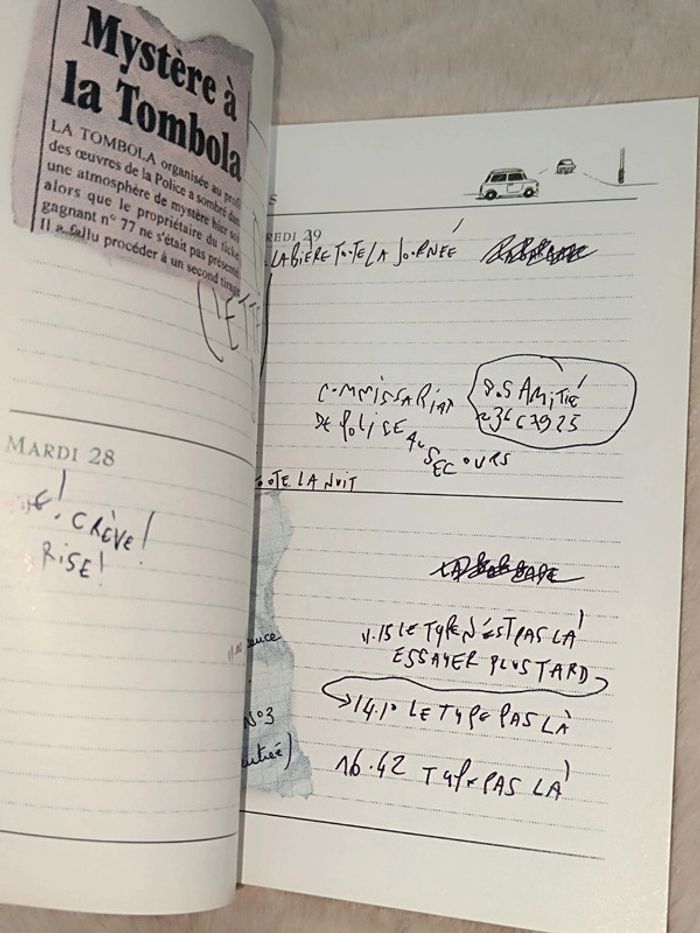 Mystère à
la Tombola
LA TOMBOLA organisée au profit
des œuvres de la Police a sombré dans
une atmosphère de mystère hier soir
alors que le propriétaire du ticket
gagnant n° 77 ne s'était pas présenté.
Il a fallu procéder à un second tirage
MARDI 28
CRÈVE!
RISE!
REDI 29
LA BIÈRE TOUTE LA JOURNÉE
COMMISSARIAT
DE POLICE AU SECOURS
S.O.S AMITIÉ
OTE LA NUIT
11.15 LE TYPE N'EST PAS LÀ
ESSAYER PLUS TARD
14.10 LE TYPE PAS LÀ
16.42 TYPE PAS LÀ
N°3